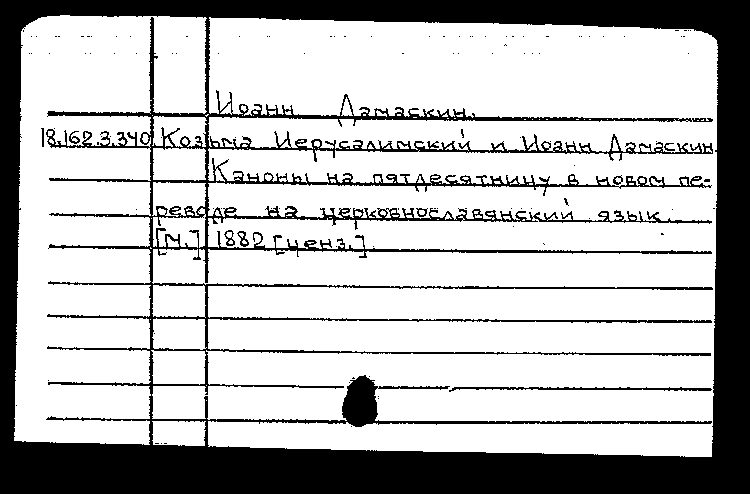 Иоанн Дамаскин.
18.162.3.340 Козьма Иерусалимский и Иоанн Дамаскин
Каноны на пятдесятницу в новом пе-
реводе на церковнославянский язык.
[М.] 1882 [ценз.]